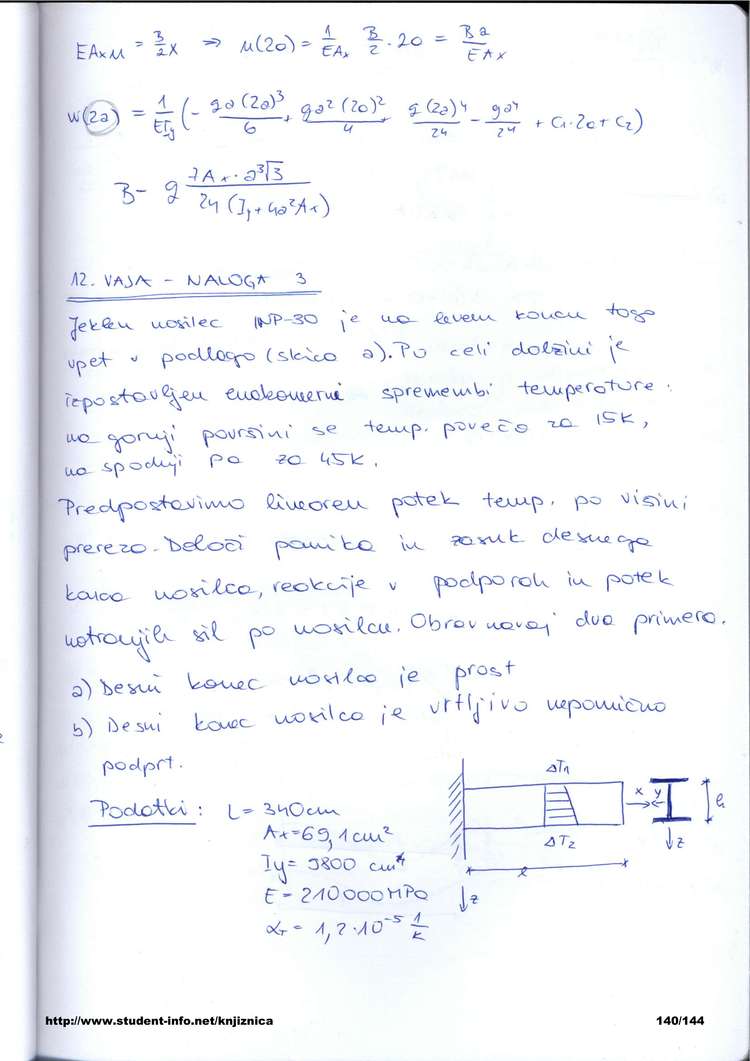 EAₓu = B/2 x ⇒ u(2a) = 1/EAₓ B/2 · 2a = Ba/EAₓ
w(2a) = 1/EIy (- ga(2a)³/6 + ga²(2a)²/4 g(2a)⁴/24 - ga⁴/24 + C₁·2a + C₂)
B - g 7Aₓ·a³√3 / 24(Iy+4a²Aₓ)
12. VAJA - NALOGA 3
Jeklen nosilec INP-30 je na levem koncu togo
vpet v podlago (skica a). Po celi dolžini je
izpostavljen enakomerni spremembi temperature:
na gornji površini se temp. poveča za 15K,
na spodnji pa za 45K.
Predpostavimo linearen potek temp. po višini
prereza. Določi pomika in zasuk desnega
konca nosilca, reakcije v podporah in potek
notranjih sil po nosilcu. Obravnavaj dva primera.
a) Desni konec nosilca je prost
b) Desni konec nosilca je vrtljivo nepomično
podprt.
Podatki: L = 340cm
Aₓ=69,1cm²
Iy= 9800 cm⁴
E = 210000MPa
αT = 1,2·10⁻⁵ 1/K
ΔT₁
x y h
z
ΔT₂
l
z
http://www.student-info.net/knjiznica 140/144